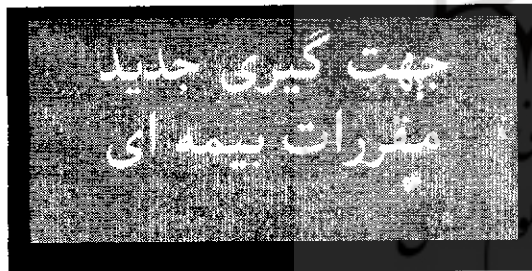 جهت گیری جدید
مقررات بیمه ای